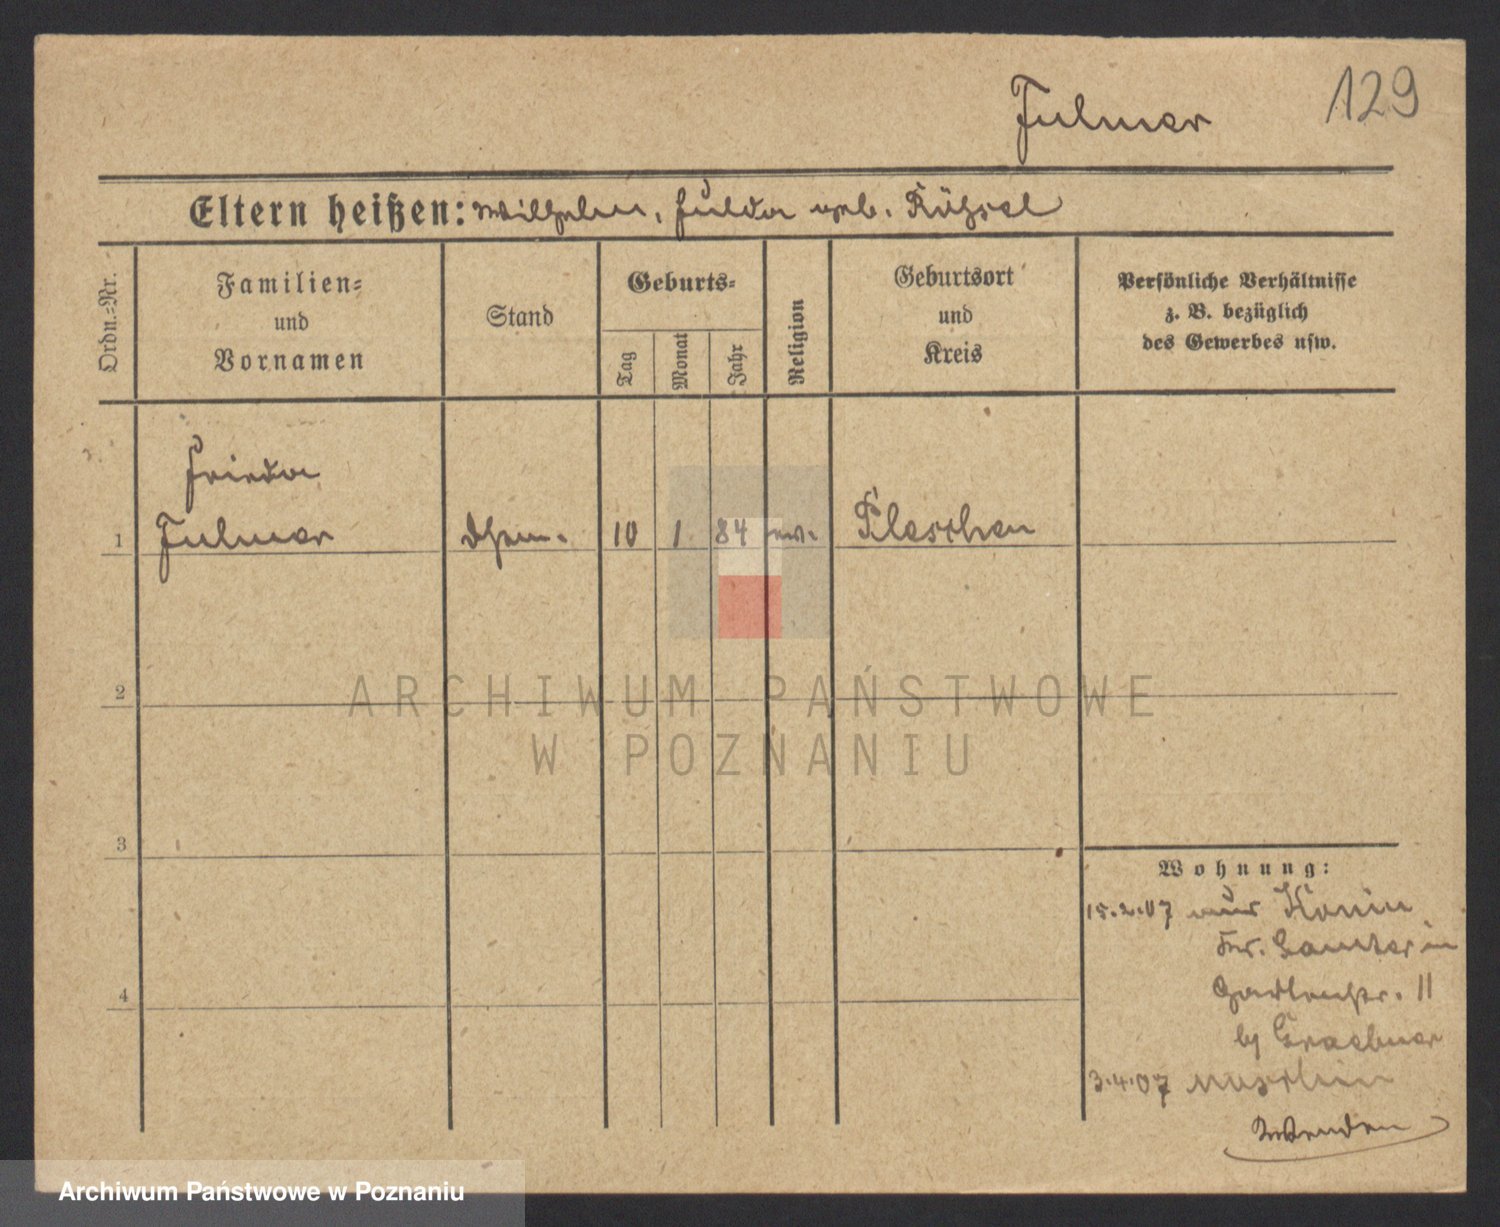 Fulmer
129
Eltern heißen: Wilhelm, Hulda geb.
Ordn.=Nr.
Familien=
und
Vornamen
Stand
Geburts=
Tag
Monat
Jahr
Religion
Geburtsort
und
Kreis
Persönliche Verhältnisse
z. B. bezüglich
des Gewerbes usw.
Frieda
1 Fulmer 10 1 84 ev. Pleschen
2
3
4
Wohnung:
15.2.07 aus Konin
Kr. Samter in
Gartenstr. 11
by Graebner
3.4.07
Wenden
ARCHIWUM PAŃSTWOWE
W POZNANIU
Archiwum Państwowe w Poznaniu